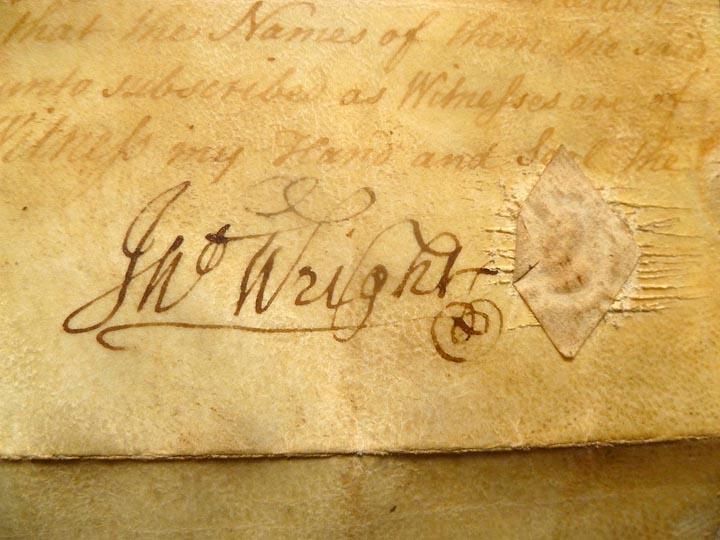 that the Names of them the said
unto subscribed as Witneſses are of
Witneſs my Hand and Seal the
Jnᵒ Wright